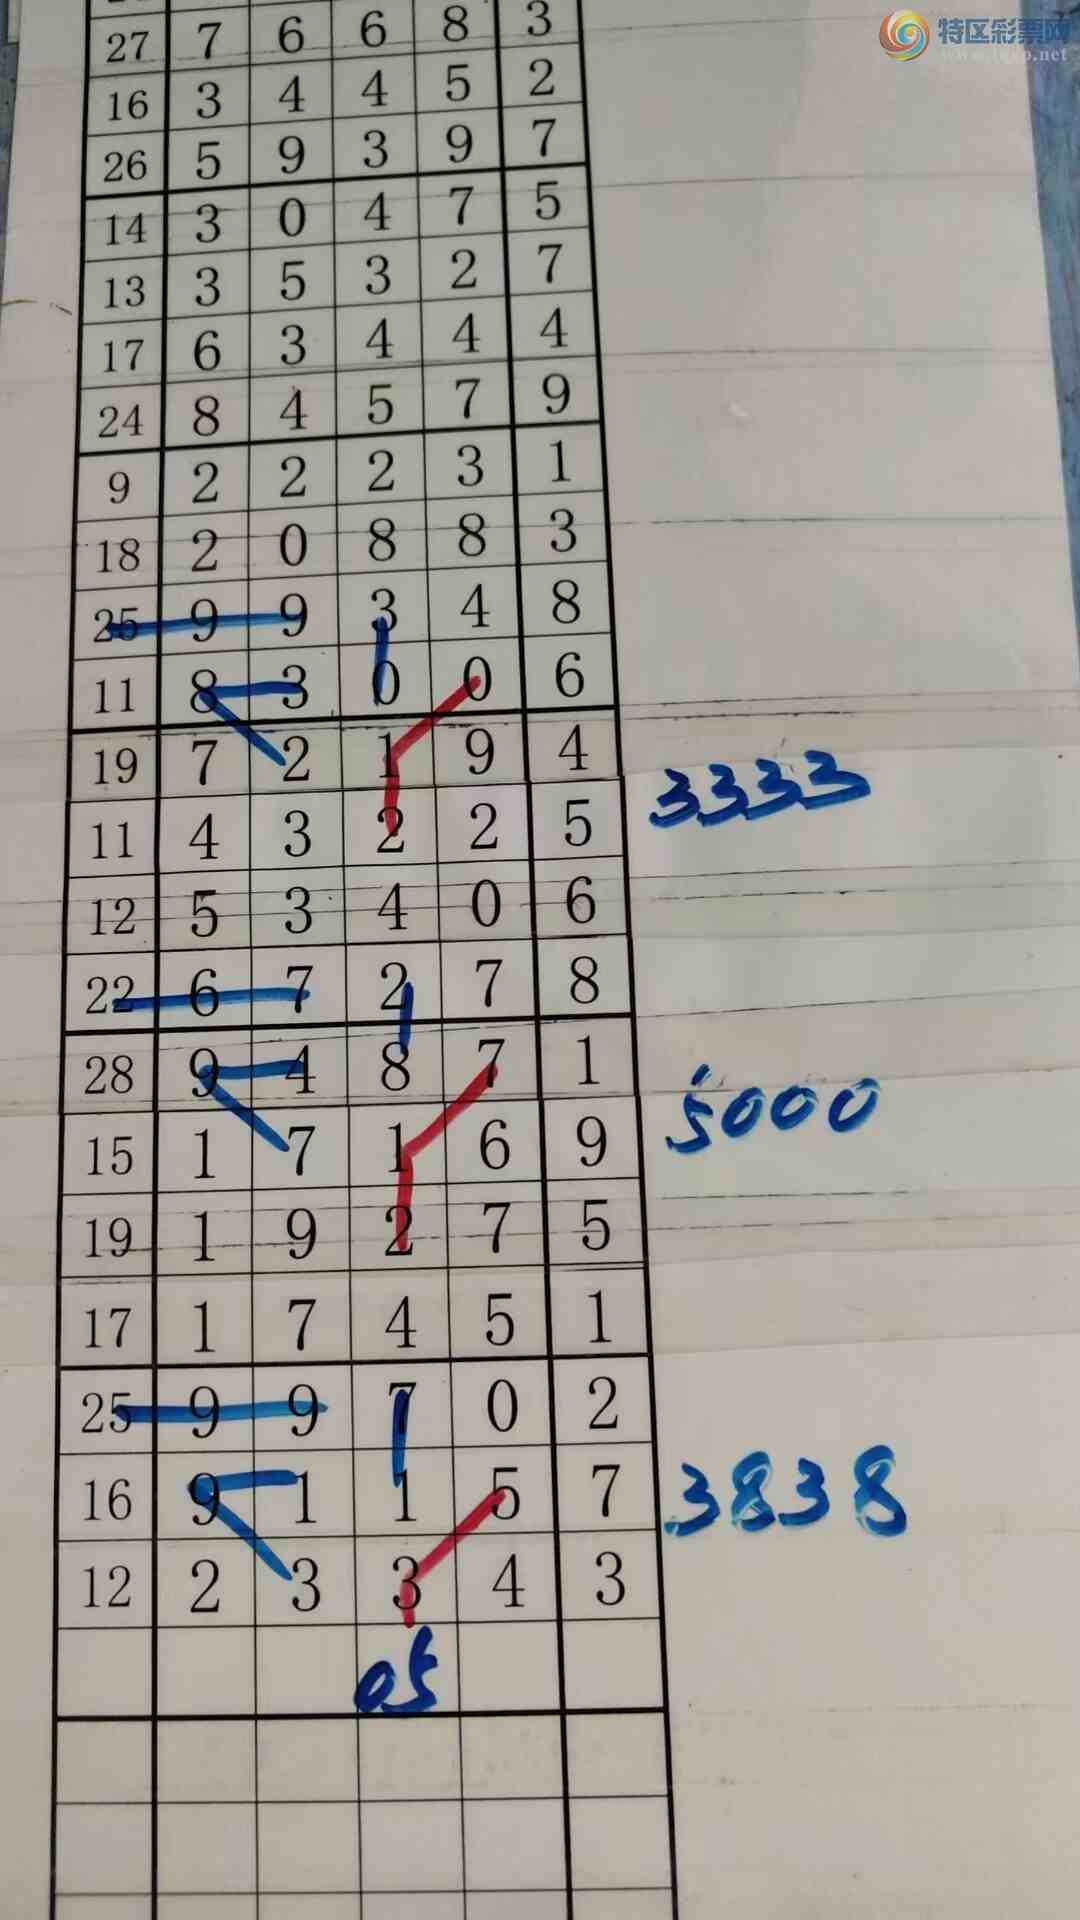 特区彩票网
www.tqcp.net
27 7 6 6 8 3
16 3 4 4 5 2
26 5 9 3 9 7
14 3 0 4 7 5
13 3 5 3 2 7
17 6 3 4 4 4
24 8 4 5 7 9
9 2 2 2 3 1
18 2 0 8 8 3
25 9 9 3 4 8
11 8 3 0 0 6
19 7 2 1 9 4
3333
11 4 3 2 2 5
12 5 3 4 0 6
22 6 7 2 7 8
28 9 4 8 7 1
5000
15 1 7 1 6 9
19 1 9 2 7 5
17 1 7 4 5 1
25 9 9 7 0 2
16 9 1 1 5 7
3838
12 2 3 3 4 3
05